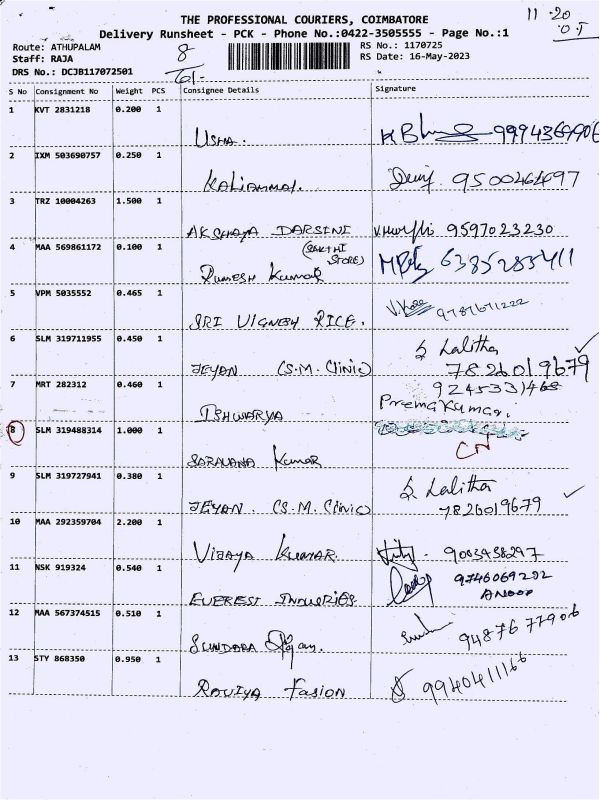 11 20
THE PROFESSIONAL COURIERS, COIMBATORE
Delivery Runsheet - PCK - Phone No.:0422-3505555 - Page No.:1
Route: ATHUPALAM
Staff: RAJA
DRS No.: DCJB117072501
8
RS No.: 1170725
RS Date: 16-May-2023
S No Consignment No Weight PCS Consignee Details Signature
1 KVT 2831218 0.200 1
USHA.
2 IXM 503690757 0.250 1
KALIAMMAL. 9500464697
3 TRZ 10004263 1.500 1
AKSHAYA DARSINI 9597023230
4 MAA 569861172 0.100 1
(SAKTHI STORE)
RUMESH KUMAR 6385285411
5 VPM 5035552 0.465 1
SRI VIGNESH RICE. 9787671222
6 SLM 319711955 0.450 1
JEYAN (S.M. Clinic) S. Lalitha 7826019679
7 MRT 282312 0.460 1
9245331468
ISHWARYA PremaKumar.
8 SLM 319488314 1.000 1
SARAVANA KUMAR CN
9 SLM 319727941 0.380 1
JEYAN. (S.M. Clinic) S. Lalitha 7826019679
10 MAA 292359704 2.200 1
VIJAYA KUMAR. 9003938297
11 NSK 919324 0.540 1
EVEREST INDUSRIES 9746069292 ANOOP
12 MAA 567374515 0.510 1
SUNDARA 9487677906
13 STY 868350 0.950 1
RAVIYA Fasion 9940411166